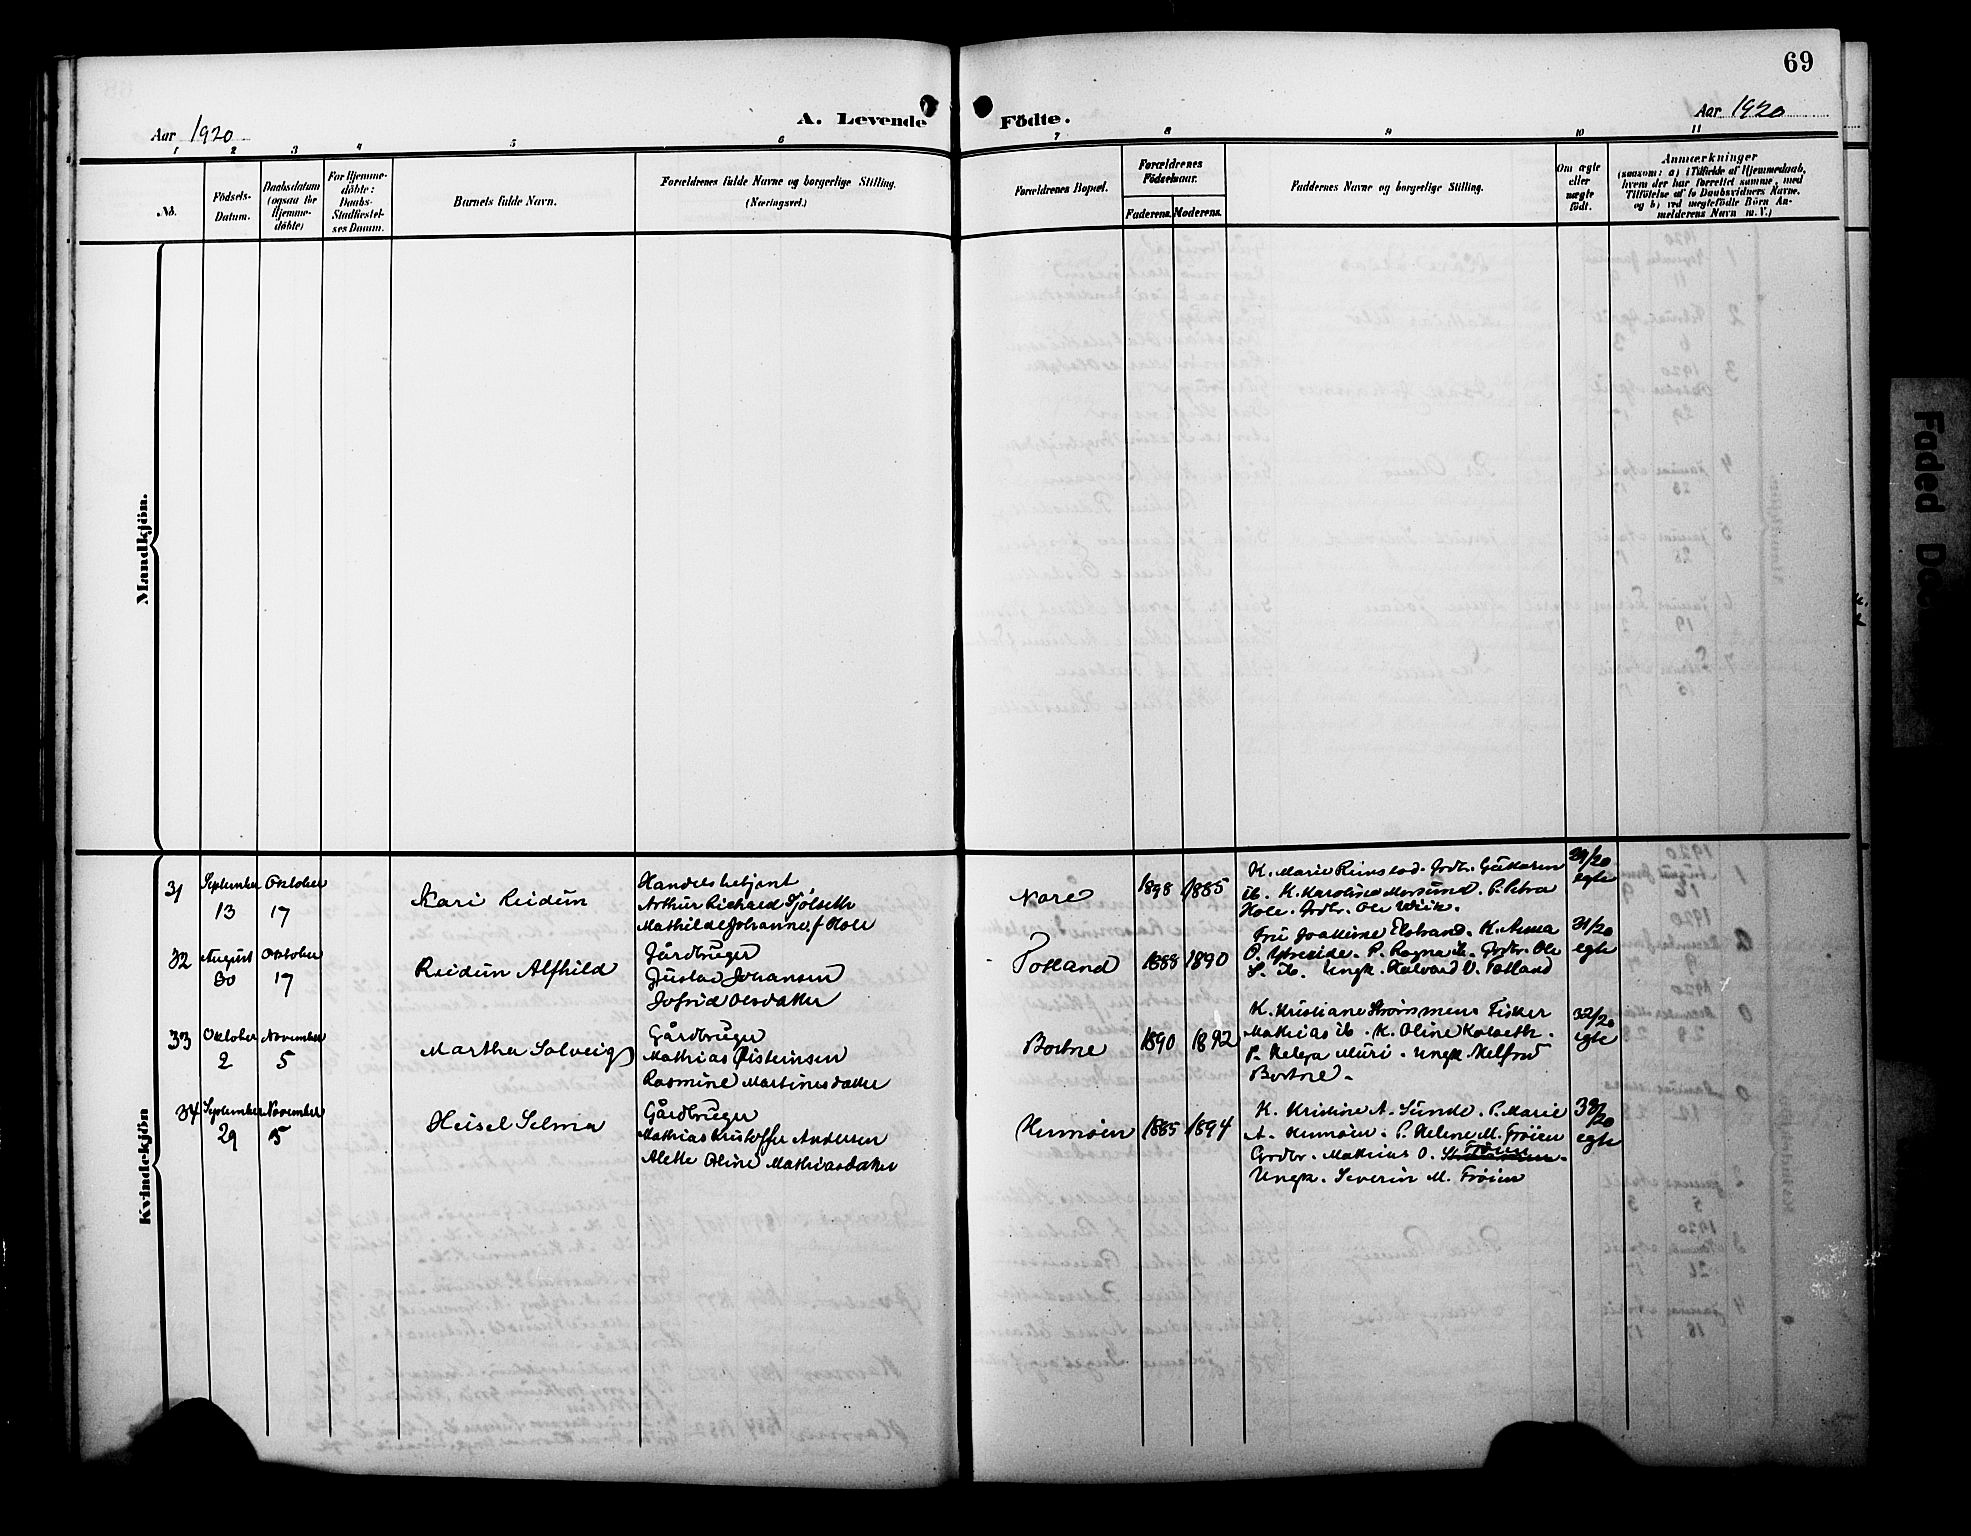 69
Aar 1920
A. Levende Födte.
Aar 1920
1 2 3 4 5 6 7 8 9 10 11
No.
Födsels-
Datum.
Daabsdatum
(ogsaa for
Hjemme-
döbte)
For Hjemme-
döbte:
Daabs-
Stadfæstel-
ses Datum.
Barnets fulde Navn.
Forældrenes fulde Navne og borgerlige Stilling.
(Næringsvei.)
Forældrenes Bopæl.
Forældrenes
Födselsaar.
Faderens. Moderens.
Faddernes Navne og borgerlige Stilling.
Om ægte
eller
uægte
födt.
Anmærkninger
(saasom: a) i Tilfælde af Hjemmedaab,
hvem der har forrettet samme, med
Tilföielse af to Daabsvidners Navne,
og b) ved uægtefödte Börn An-
melderens Navn m. V.)
Mandkjön.
Kvindekjön
31
September
13
Oktober
17
Kari Reidun
Handelsbetjent
Arthur Richard Fjölseth
Mathilde Johanne f. Hole
Nore
1898 1885
K. Marie Reinstad. Grdbr. Guttorm
ib. K. Karoline Morsund. P. Petra
Hole. Grdbr. Ole Wiik.
29/20
egte
32
August
30
Oktober
17
Reidun Alfhild
Gårdbruger
Gustav Johansen
Jofrid Olesdatter
Totland
1888 1890
Fru Joakime Elstrand. K. Anna
O. Ytreeide. P. Ragna ib. Grdbr. Ole
S. ib. Ungk. Halvard O. Totland
31/20
egte
33
Oktober
2
November
5
Martha Solveig
Gårdbruger
Mathias Øisteinsen
Rasmine Martinusdatter
Bortne
1890 1892
K. Kristiane Strömmen. Fisker
Mathias ib. K. Oline Kolseth.
P. Helga Muri. Ungk. Melfred
Bortne.
32/20
egte
34
September
29
November
5
Heisel Selma
Gårdbruger
Mathias Kristoffer Andersen
Alette Oline Mathiasdatter
Hennöen
1885 1894
K. Kristine A. Sunde. P. Marie
A. Hennöen. P. Helene M. Fröien
Grdbr. Mathias O. Fröien.
Ungk. Severin M. Fröien
33/20
egte
Faded